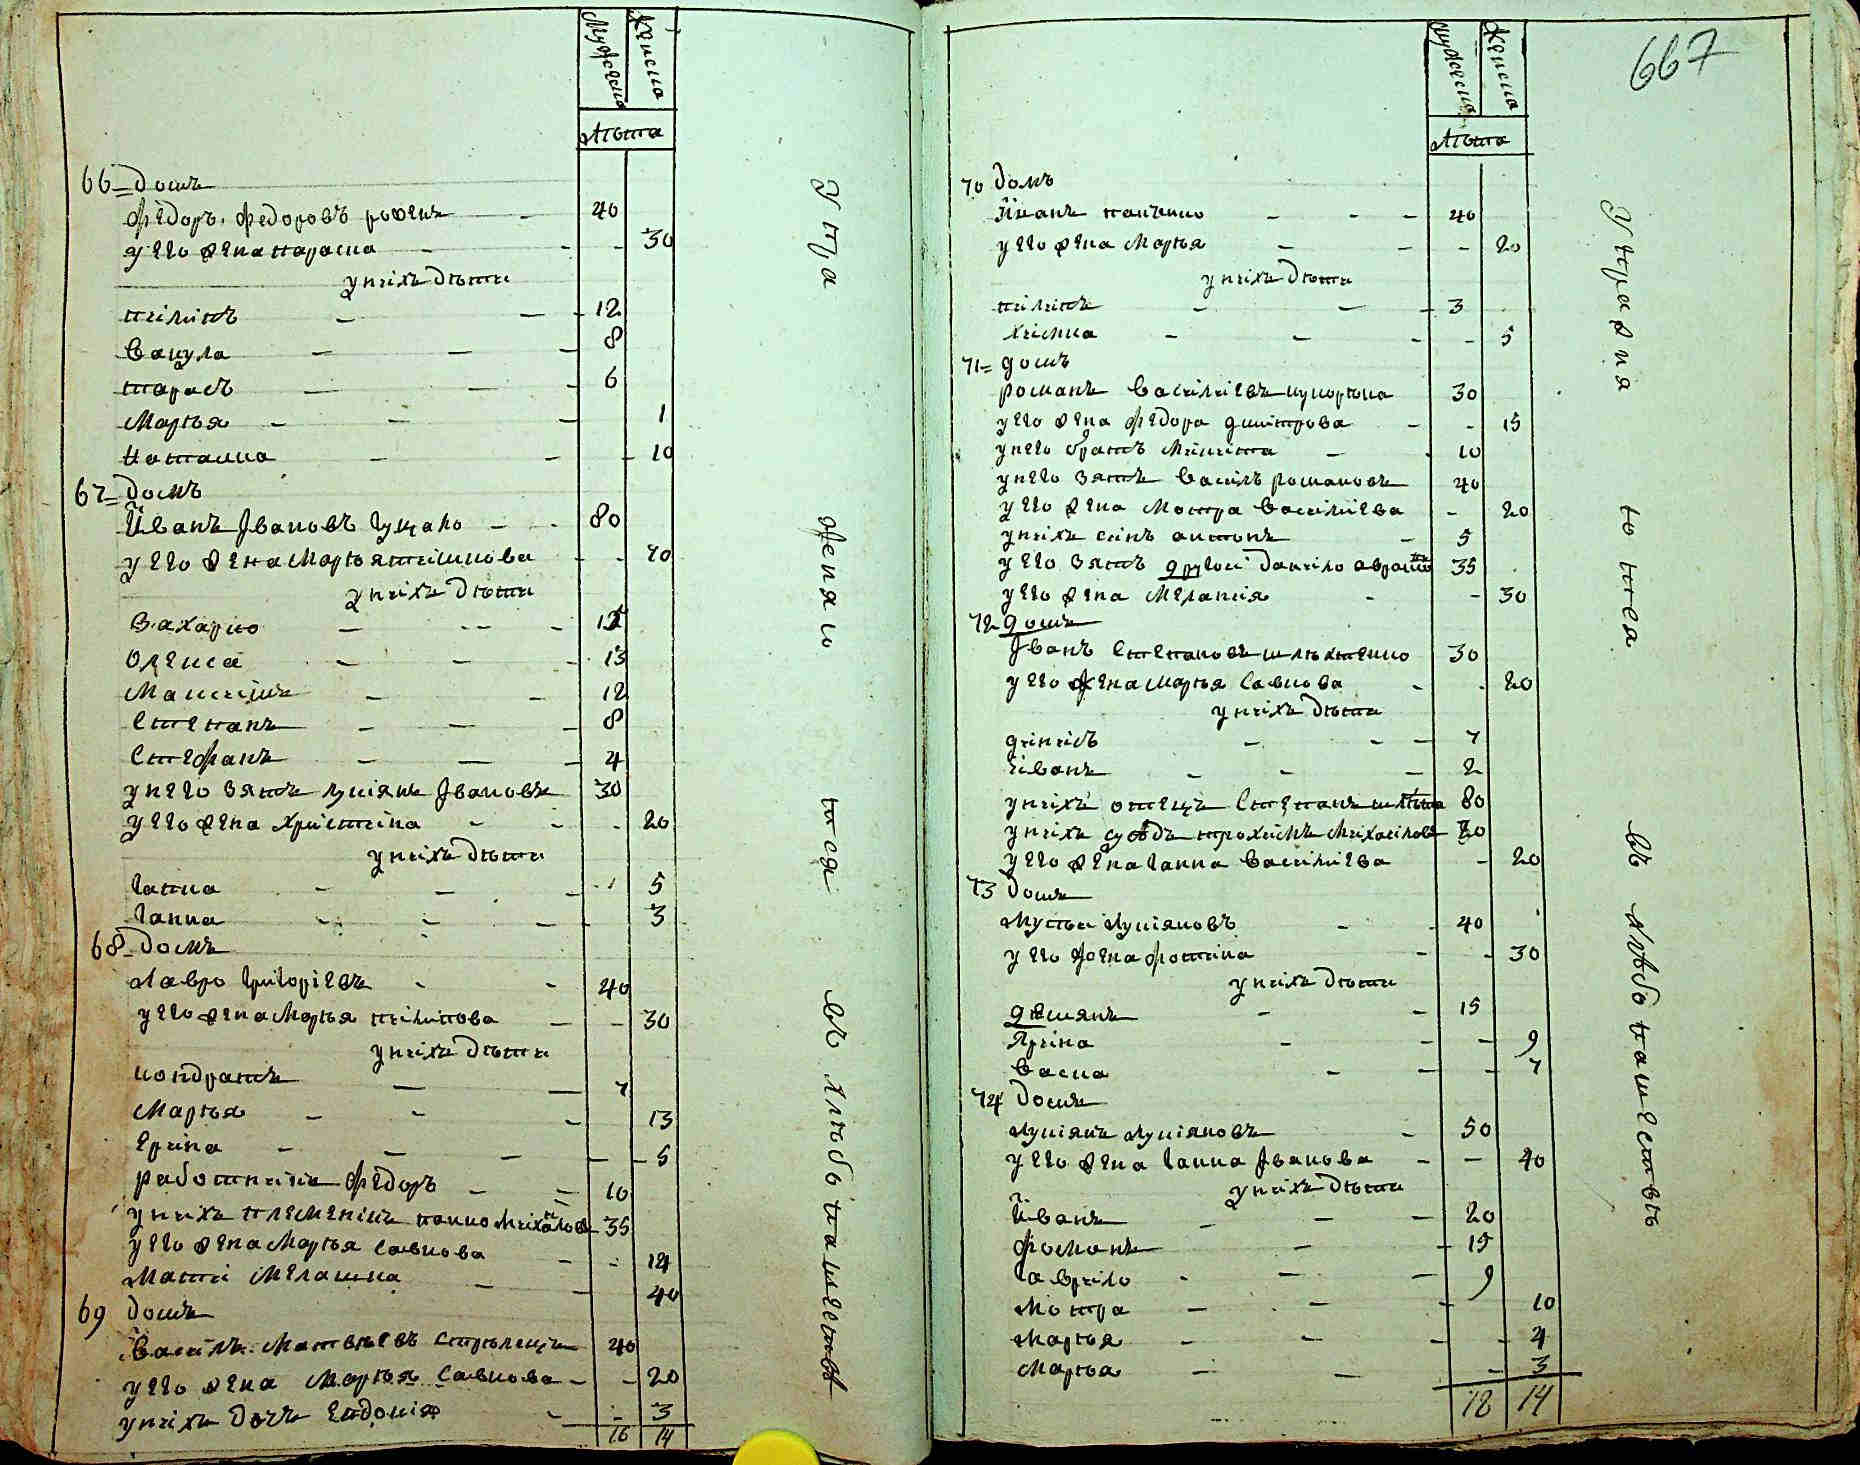 Мужеска Женска
Лѣта
66 домъ
Федоръ Федоровъ 40
у его жена Параска 30
у нихъ дѣти
Пилипъ 12
Вакула 8
Тарасъ 6
Марья 1
Наталка 10
67 домъ
Иванъ Івановъ Гуцало 80
у его жена Марья 40
у нихъ дѣти
Захарко
Олекса 13
Максимъ 12
Степанъ 8
Стефанъ 4
у него зять Лукіянъ Івановъ 30
у его жена Христина 20
у нихъ дѣти
Гапка 5
Ганна 3
68 домъ
Лавро Григоріевъ 40
у его жена Марья Пилипова 30
у нихъ дѣти
Кондратъ 7
Марья 13
Ерина 5
работникъ Федоръ 10
у нихъ племеникъ Панко Михайловъ 35
у его жена Марья Савкова
Мати Мелашка 40
69 домъ
Василь Матвѣевъ Стрѣлецъ 40
у его жена Марья Савкова 20
у нихъ дочь Евдокія 3
16 14
Упра жняю тся въ хлѣбопашествѣ
Мужеска Женска
667
Лѣта
70 домъ
Иванъ 40
у его жена Марья 20
у нихъ дѣти
Пилипъ 3
Химка 5
71 домъ
Романъ Василіевъ 30
у его жена Федора Дмитрова 15
у него братъ Микита 10
у него зять Василь Романовъ 40
у его жена Мотра Василіева 20
у нихъ синъ Антонъ 5
у его зять другой Данило 35
у его жена Меланія 30
72 домъ
Іванъ Степановъ 30
у его жена Марья Савкова 20
у нихъ дѣти
Динисъ 7
Иванъ 2
у нихъ отецъ Степанъ 80
у нихъ сусѣдъ Трохимъ Михайловъ
у его жена Ганна Василіева 20
73 домъ
Мусѣй Лукіяновъ 40
у его жена Фотина 30
у нихъ дѣти
Демянъ 15
Ярина 9
Васка 7
74 домъ
Лукіянъ Лукіяновъ 50
у его жена Ганна Іванова 40
у нихъ дѣти
Иванъ 20
Фоманъ 15
Гаврило 9
Мотра 10
Марья 4
Марья 3
18 14
Упражня ются въ хлѣбопашествѣ